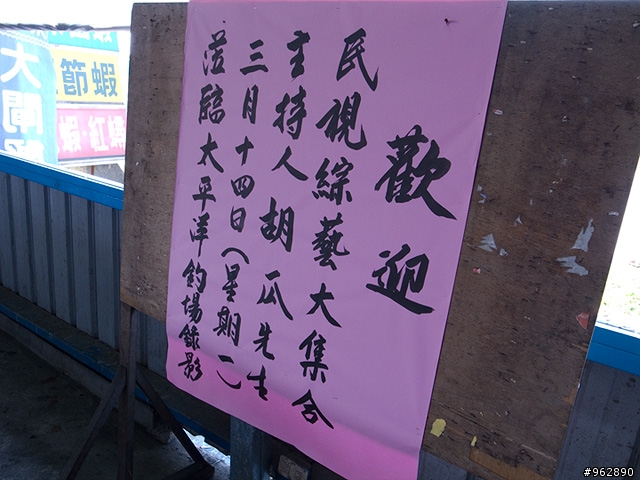 歡迎
民視綜藝大集合
主持人胡瓜先生
三月十四日（星期二）
蒞臨太平洋釣場錄影
節蝦
蝦 紅蟳
大閘
#962890